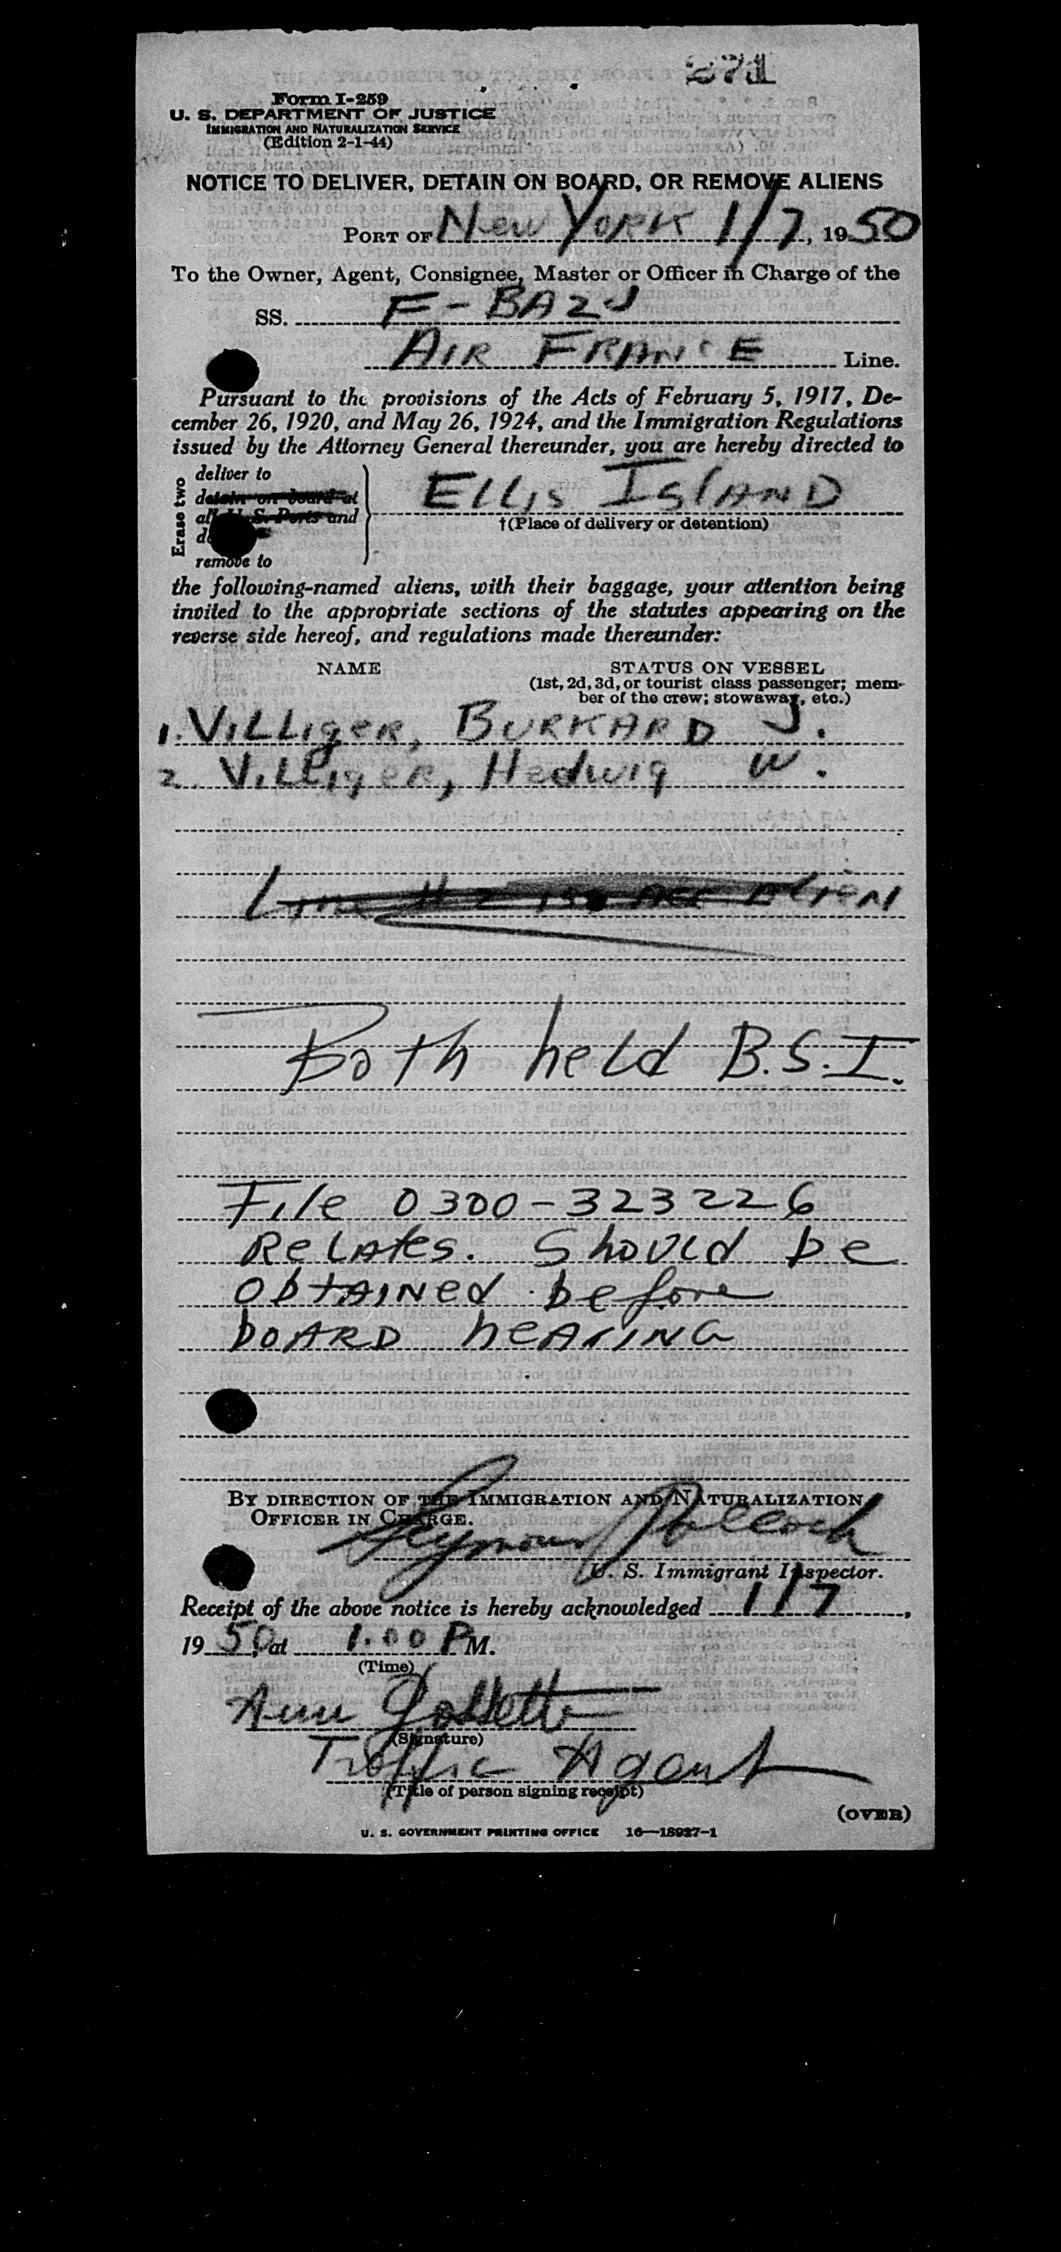 271
Form I-259
U. S. DEPARTMENT OF JUSTICE
IMMIGRATION AND NATURALIZATION SERVICE
(Edition 2-1-44)
NOTICE TO DELIVER, DETAIN ON BOARD, OR REMOVE ALIENS
PORT OF New York 1/7, 1950
To the Owner, Agent, Consignee, Master or Officer in Charge of the
SS. F-BAZJ
AIR FRANCE Line.
Pursuant to the provisions of the Acts of February 5, 1917, De-
cember 26, 1920, and May 26, 1924, and the Immigration Regulations
issued by the Attorney General thereunder, you are hereby directed to
Erase two
deliver to
detain on board at
all U. S. Ports and
remove to
ELLIS ISLAND
†(Place of delivery or detention)
the following-named aliens, with their baggage, your attention being
invited to the appropriate sections of the statutes appearing on the
reverse side hereof, and regulations made thereunder:
NAME STATUS ON VESSEL
(1st, 2d, 3d, or tourist class passenger; mem-
ber of the crew; stowaway, etc.)
1. VILLIGER, BURKARD J.
2. VILLIGER, Hedwig W.
Line # 2 alien
Both held B.S.I.
File 0300-323226
Relates. Should be
obtained before
board hearing
BY DIRECTION OF THE IMMIGRATION AND NATURALIZATION
OFFICER IN CHARGE.
Seymour Pollock
U. S. Immigrant Inspector.
Receipt of the above notice is hereby acknowledged 1/7,
1950, at 1.00 PM.
(Time)
Ann
(Signature)
Traffic Agent
(Title of person signing receipt)
(OVER)
U. S. GOVERNMENT PRINTING OFFICE 16—18927-1